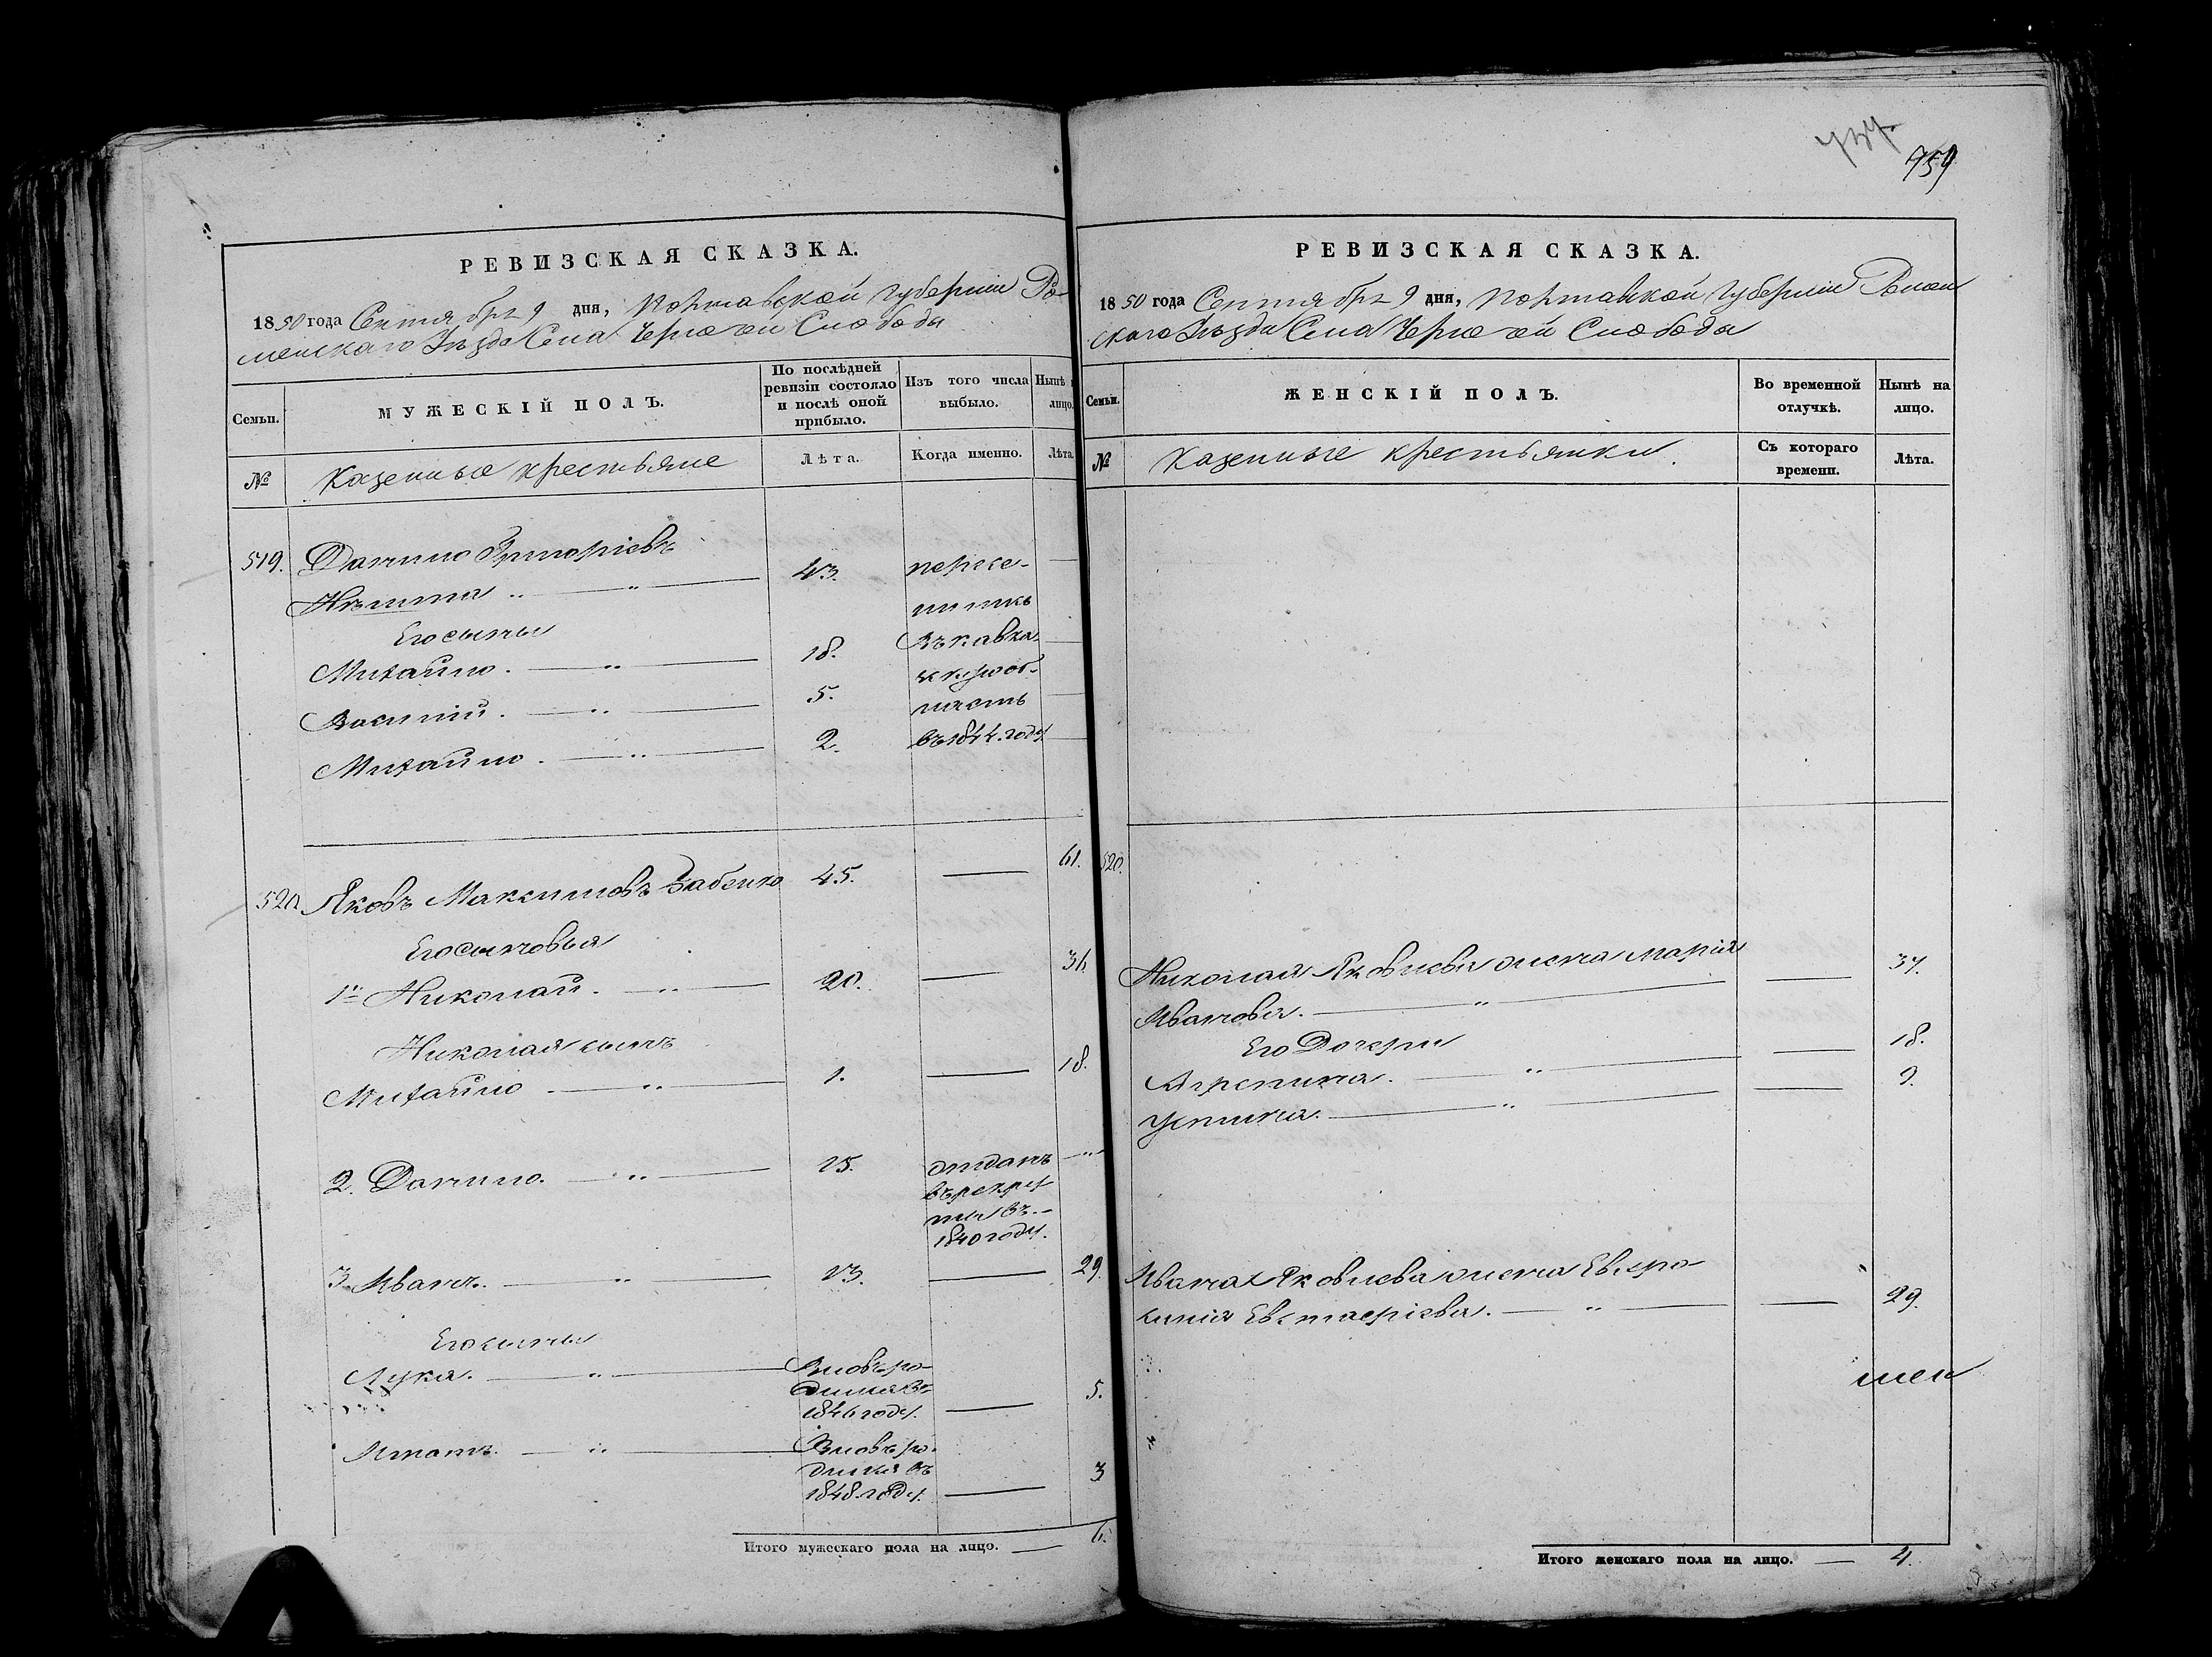 759
РЕВИЗСКАЯ СКАЗКА.
1850 года Сентября 9 дня, Полтавской Губернии Ро-
менскаго Уѣзда Села Черной Слободы
Семьи.
МУЖЕСКІЙ ПОЛЪ.
По послѣдней ревизіи состояло и послѣ оной прибыло.
Изъ того числа выбыло.
Нынѣ
лицо.
№
Казенные крестьяне
Лѣта.
Когда именно.
Лѣта.
519. Данило Григорьевъ
43. пересе-
лился
Его сыны
Михайло. — " — 18. въ Кавка-
Василій. — " — 5.
Михайло. — " — 2. въ 1844. году
520. Яковъ Максимовъ Бабенко 45. — 61.
Его сыновья
1й Николай. — " — 20. — 36
Николая сынъ
Михайло — " — 1. — 18.
2. Данило. — " — 15. отданъ —"—
въ рекру-
ты въ -
1840 году.
3. Иванъ. — " — 13. — 29.
Его сыны
Лука. — " — Вновь ро-
дился въ
1846 году. — 5.
Игнатъ. — " — Вновь ро-
дился въ
1848. году. — 3
Итого мужескаго пола на лицо. — 6.
РЕВИЗСКАЯ СКАЗКА.
1850 года Сентября 9 дня, Полтавской Губерніи Ромен
скаго Уѣзда Села Черной Слободы
Семьи.
ЖЕНСКІЙ ПОЛЪ.
Во временной отлучкѣ.
Нынѣ на лицо.
№
Казенные крестьянки.
Съ котораго времени.
Лѣта.
520.
Николая Яковлева жена Марія
Иванова. — " — — 37.
Его Дочери
Агрепина. — " — — 18.
Устина. — " — — 9.
Ивана Яковлева жена Евфро-
синія Евстафіева. — " — — 29.
Итого женскаго пола на лицо. — 4.